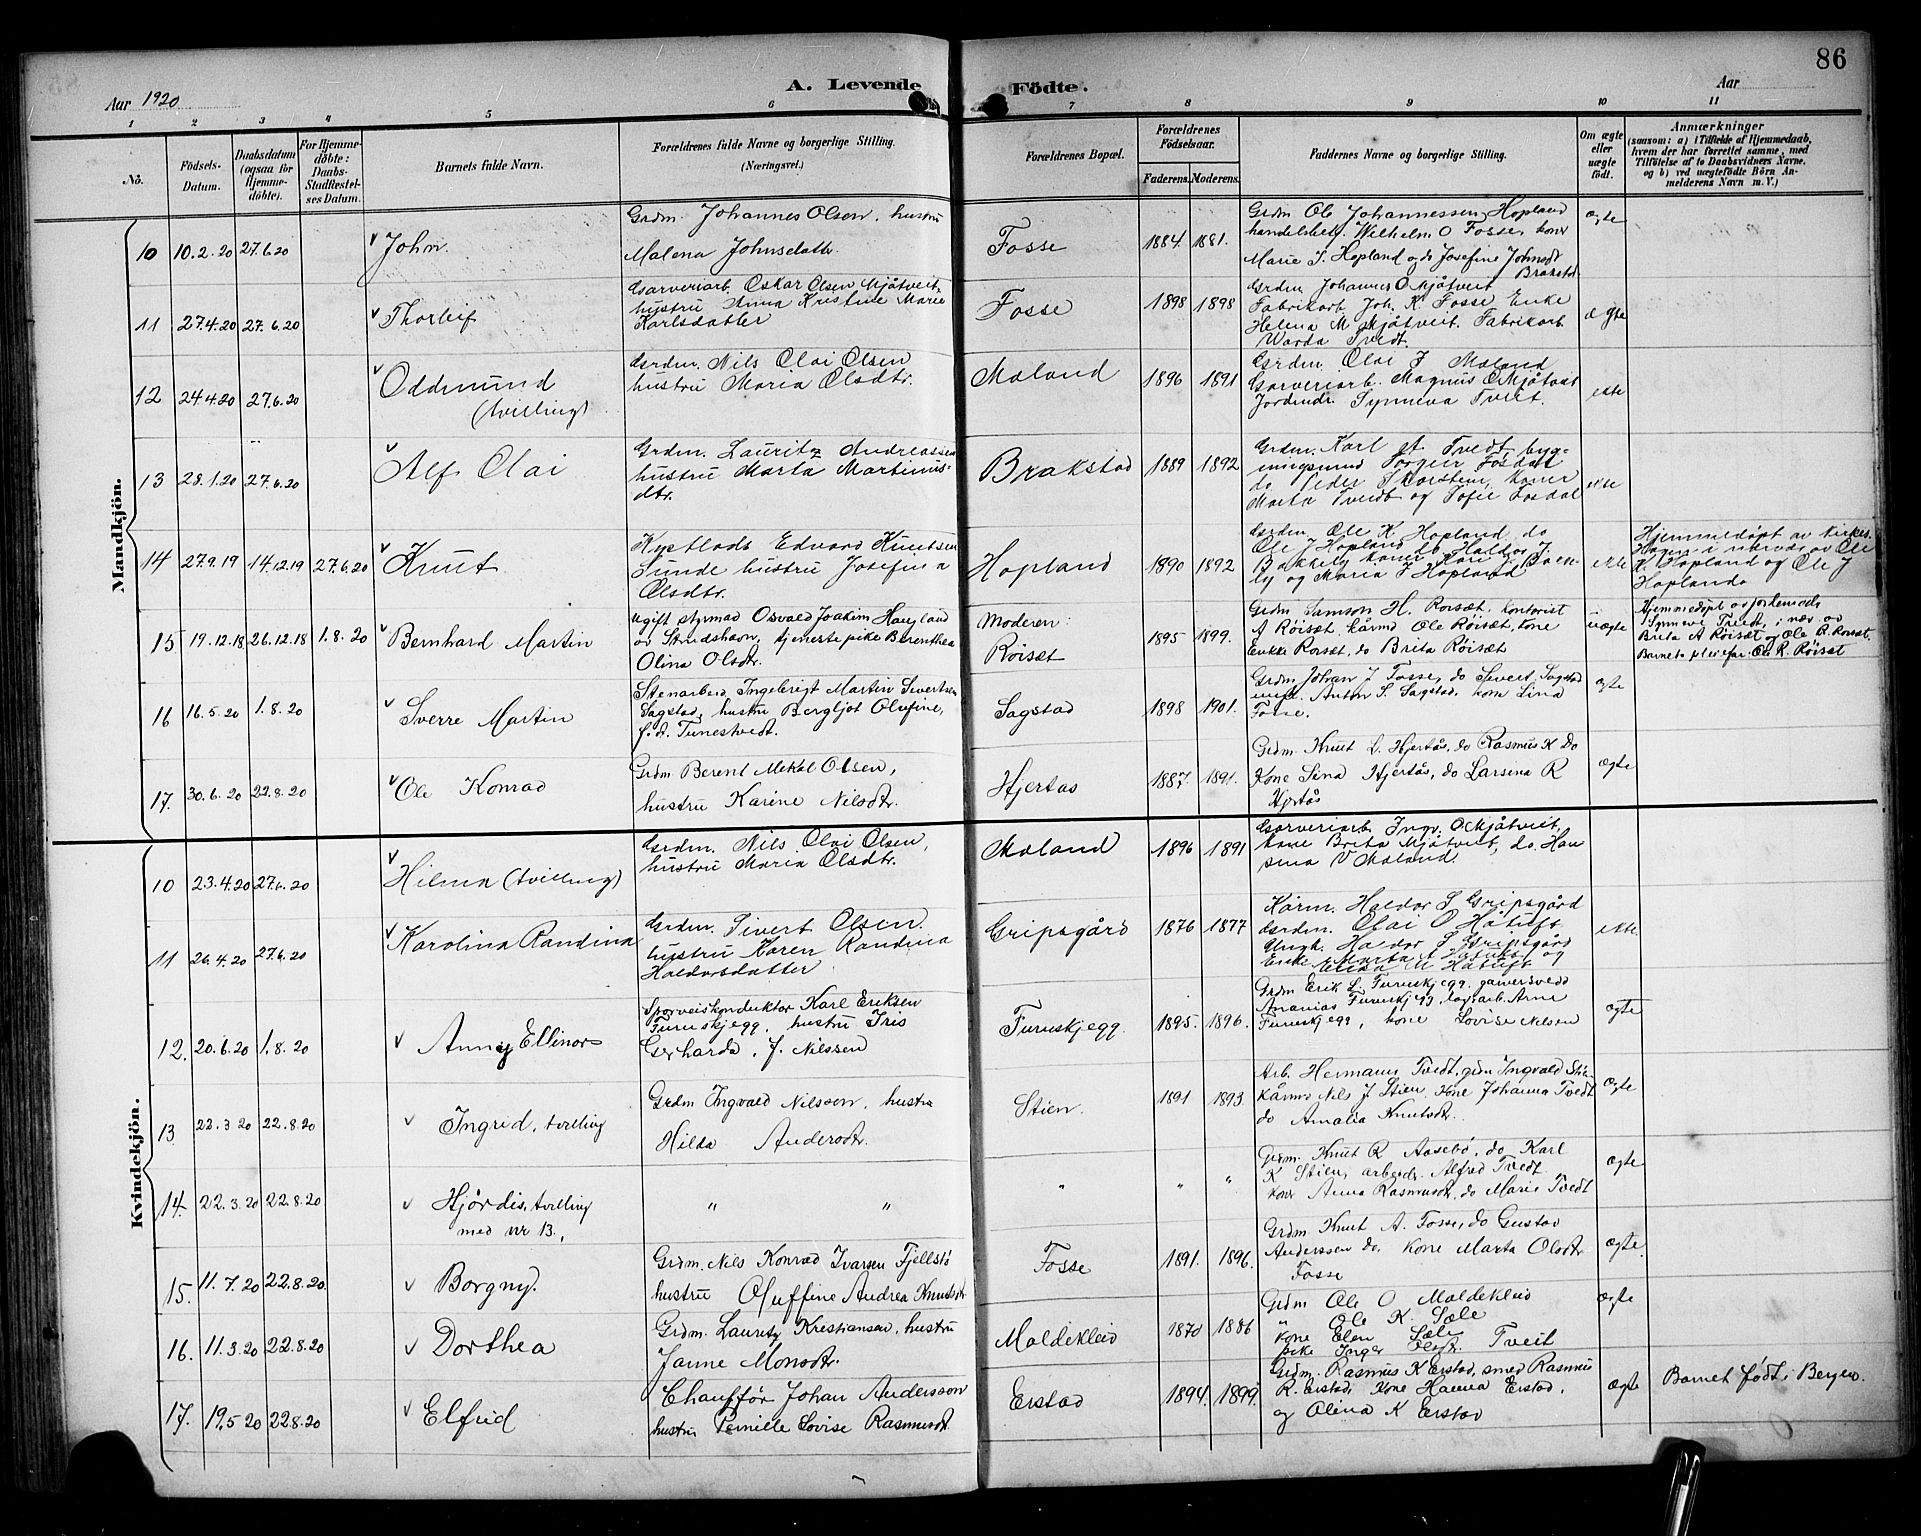 86
Aar 1920
A. Levende Fødte.
Aar
1 2 3 4 5 6 7 8 9 10 11
No.
Fødsels-Datum.
Daabsdatum (ogsaa for Hjemme-døbte).
For Hjemme-døbte: Daabs-Stadfæstel-ses Datum.
Barnets fulde Navn.
Forældrenes fulde Navne og borgerlige Stilling.
(Næringsvei.)
Forældrenes Bopæl.
Forældrenes Fødselsaar.
Faderens. Moderens.
Faddernes Navne og borgerlige Stilling.
Om ægte eller uægte født.
Anmærkninger
(saasom: a) i Tilfælde af Hjemmedaab,
hvem der har forrettet samme, med
Tilføielse af to Daabsvidners Navne.
og b) ved uægtefødte Børn An-
melderens Navn m. V.)
Mandkjön.
10 10.2.20 27.6.20 John.
Grdm. Johannes Olsen, hustru
Malena Johnsdattr.
Fosse 1884. 1881.
Grdm Ole Johannessen Hopland
handelsbetj. Wilhelm O Fosse, kone
Marie S. Hopland og do Josefine Johnsdt
Brakstad
ægte
11 27.4.20 27.6.20 Thorleif
Garveriarb. Oskar Olsen Mjåtveit,
hustru Anna Kristine Marie
Karlsdatter
Fosse 1898 1898
Grdm Johannes O Mjåtveit
Fabrikarb Joh. K Fosse Enke
Helena M Mjåtveit. Fabrikarb
Warda Tvedt.
ægte
12 24.4.20 27.6.20 Oddmund
(tvilling)
Grdm. Nils Olai Olsen
hustru Maria Olsdtr.
Moland 1896 1891
Grdm. Olai J Moland
Garveriarb. Magnus O Mjåtveit
Jordmdr. Synneva Tveit.
ekte
13 28.1.20 27.6.20 Alf Olai
Grdm. Lauritz Andreassen
hustru Marta Martinus-
dtr.
Brakstad 1889 1892
Grdm. Karl A. Tvedt, byg-
ningsmd Torgeir Fosdal
do Peder Thorstein, koner
Marta Tvedt og Sofie Fosdal
ekte
14 27.9.19 14.12.19 27.6.20 Knut
Kystlods Edvard Knutsen
Sunde hustru Josefina
Olsdtr.
Hopland 1890 1892
Grdm. Ole K Hopland, do
Ole J Hopland do Haldor J.
Bakkely koner Kari J. Bakke-
ly og Maria J Hopland
ekte
Hjemmedøpt av
i nærvær av Ole
K Hopland og Ole J
Hopland
15 19.12.18 26.12.18 1.8.20 Bernhard Martin
ugift styrmad Osvald Joakim Haugland
av Strudshavn, tjenestepike Berenthea
Olina Olsdtr.
Moderen:
Röisæt 1895 1899.
Grdm Samson H. Roisæt, kontorist
A Röisæt. kårmd Ole Röisæt, kone
Enkke Roisæt, do Brita Röisæt
uægte
Hjemmedøpt av jordmoder
Synnevi Tvedt, i nærv. av
Brita A Röisæt og Ole R. Roisæt.
Barnets pleiefar Ole R. Röisæt
16 16.5.20 1.8.20 Sverre Martin
Stenarbeid. Ingebrigt Martin Sivertsen
Sagstad, hustru Bergljot Olufine,
f.d. Tunestvedt.
Sagstad 1898 1901.
Grdm Johan J Fosse, do Sivert Sagstad
ungk. Anton S. Sagstad, kone Sina
Fosse.
ægte
17. 30.6.20 22.8.20 Ole Konrad
Grdm Berent Mekal Olsen,
hustru Karine Nilsdtr.
Hjertas 1887 1891.
Grdm Knut L. Hjertås, do Rasmus K Do
Kone Sina Hjertås, do Larsina R
Hjertås
ægte
Kvindekjön.
10 23.4.20 27.6.20 Hilma (tvilling)
Grdm. Nils Olai Olsen,
hustru Maria Olsdtr.
Moland 1896 1891
Garveriarb. Ingv. O Mjåtveit,
kone Brita Mjåtveit, do. Han
sina V Moland
11 26.4.20 27.6.20 Karolina Randina
Grdm. Sivert Olsen.
hustru Karen Randina
Haldorsdatter
Gripsgård 1876 1877
Kårm. Haldor S Gripsgård
Grdm. Olai O Håtuft
Ungk. Haldor S Gripsgård
Enke Marta A Håtuft og
M Håtuft
ekte
12. 20.6.20 1.8.20 Anny Ellinor
Sporveiskonduktør Karl Eriksen
Furuskjegg, hustru Iris
Gerharda, f. Nilssen
Furuskjegg. 1895. 1896.
Grdm Erik L. Furuskjegg. garversvedd
Ananias Furuskjegg, lagerarb. Arne
Furuskjegg, kone Lovise Nilsen
ægte
13. 22.3.20 22.8.20 Ingrid, tvilling
Grdm Ingvald Nilsson, hustru
Hilda Andersdtr.
Stien. 1891 1893.
Arb. Hermann Tvedt, grdm Ingvald Stie-
Kårmd Nils J Stien, kone Johanna Tvedt
do Amalia Knutsdtr.
ægte
14. 22.3.20 22.8.20 Hjördis, tvilling
med nr 13.
" "
" " "
Grdm. Knut R Aasebö, do Karl
K Stien, arbeidr. Alfred Tvedt
kone Anna Rasmusdt, do Marie Tvedt
ægte
15. 11.7.20 22.8.20. Borgny.
Grdm. Nils Konrad Ivarsen Fjellstö
hustru Oluffine Andrea Knutsdtr
Fosse 1891. 1896.
Grdm Knut A. Fosse, do Gustav
Anderssen do, kone Marta Olsdtr
Fosse
ægte.
16. 11.3.20 22.8.20 Dorthea
Grdm. Lauritz Kristiansen, hustru
Janne Monsdtr.
Moldekleiv 1870 1886
Grdm Ole O Moldekleiv
" Ole K. Sæle
kone Elen Sæle
pike Inger Tveit
ægte
17. 19.5.20 22.8.20 Elfrid
Chauffør Johan Anderson
hustru Pernille Lovise Rasmusdt.
Eistad 1894. 1899.
Grdm. Rasmus K Eistad, smed Rasmus
R. Eistad, Kone Hanna Eistad,
og Olina K Eistad
ægte
Barnet født i Bergen.